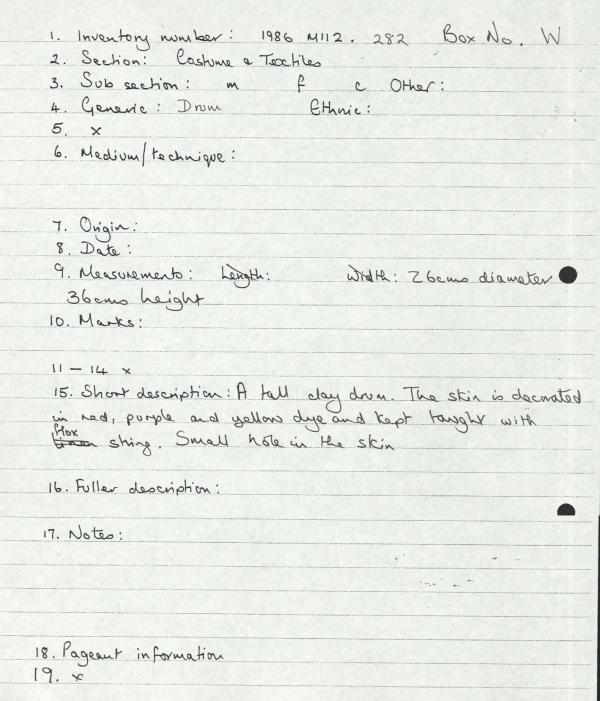 1. Inventory number: 1986 M112. 282 Box No. W
2. Section: Costume & Textiles
3. Sub section: m f c Other:
4. Generic: Drum Ethnic:
5. x
6. Medium/technique:
7. Origin:
8. Date:
9. Measurements: Length: Width: 26cms diameter
36cms height
10. Marks:
11 – 14 x
15. Short description: A tall clay drum. The skin is decorated
in red, purple and yellow dye and kept taught with
flax
linen string. Small hole in the skin
16. Fuller description:
17. Notes:
18. Pageant information
19. x